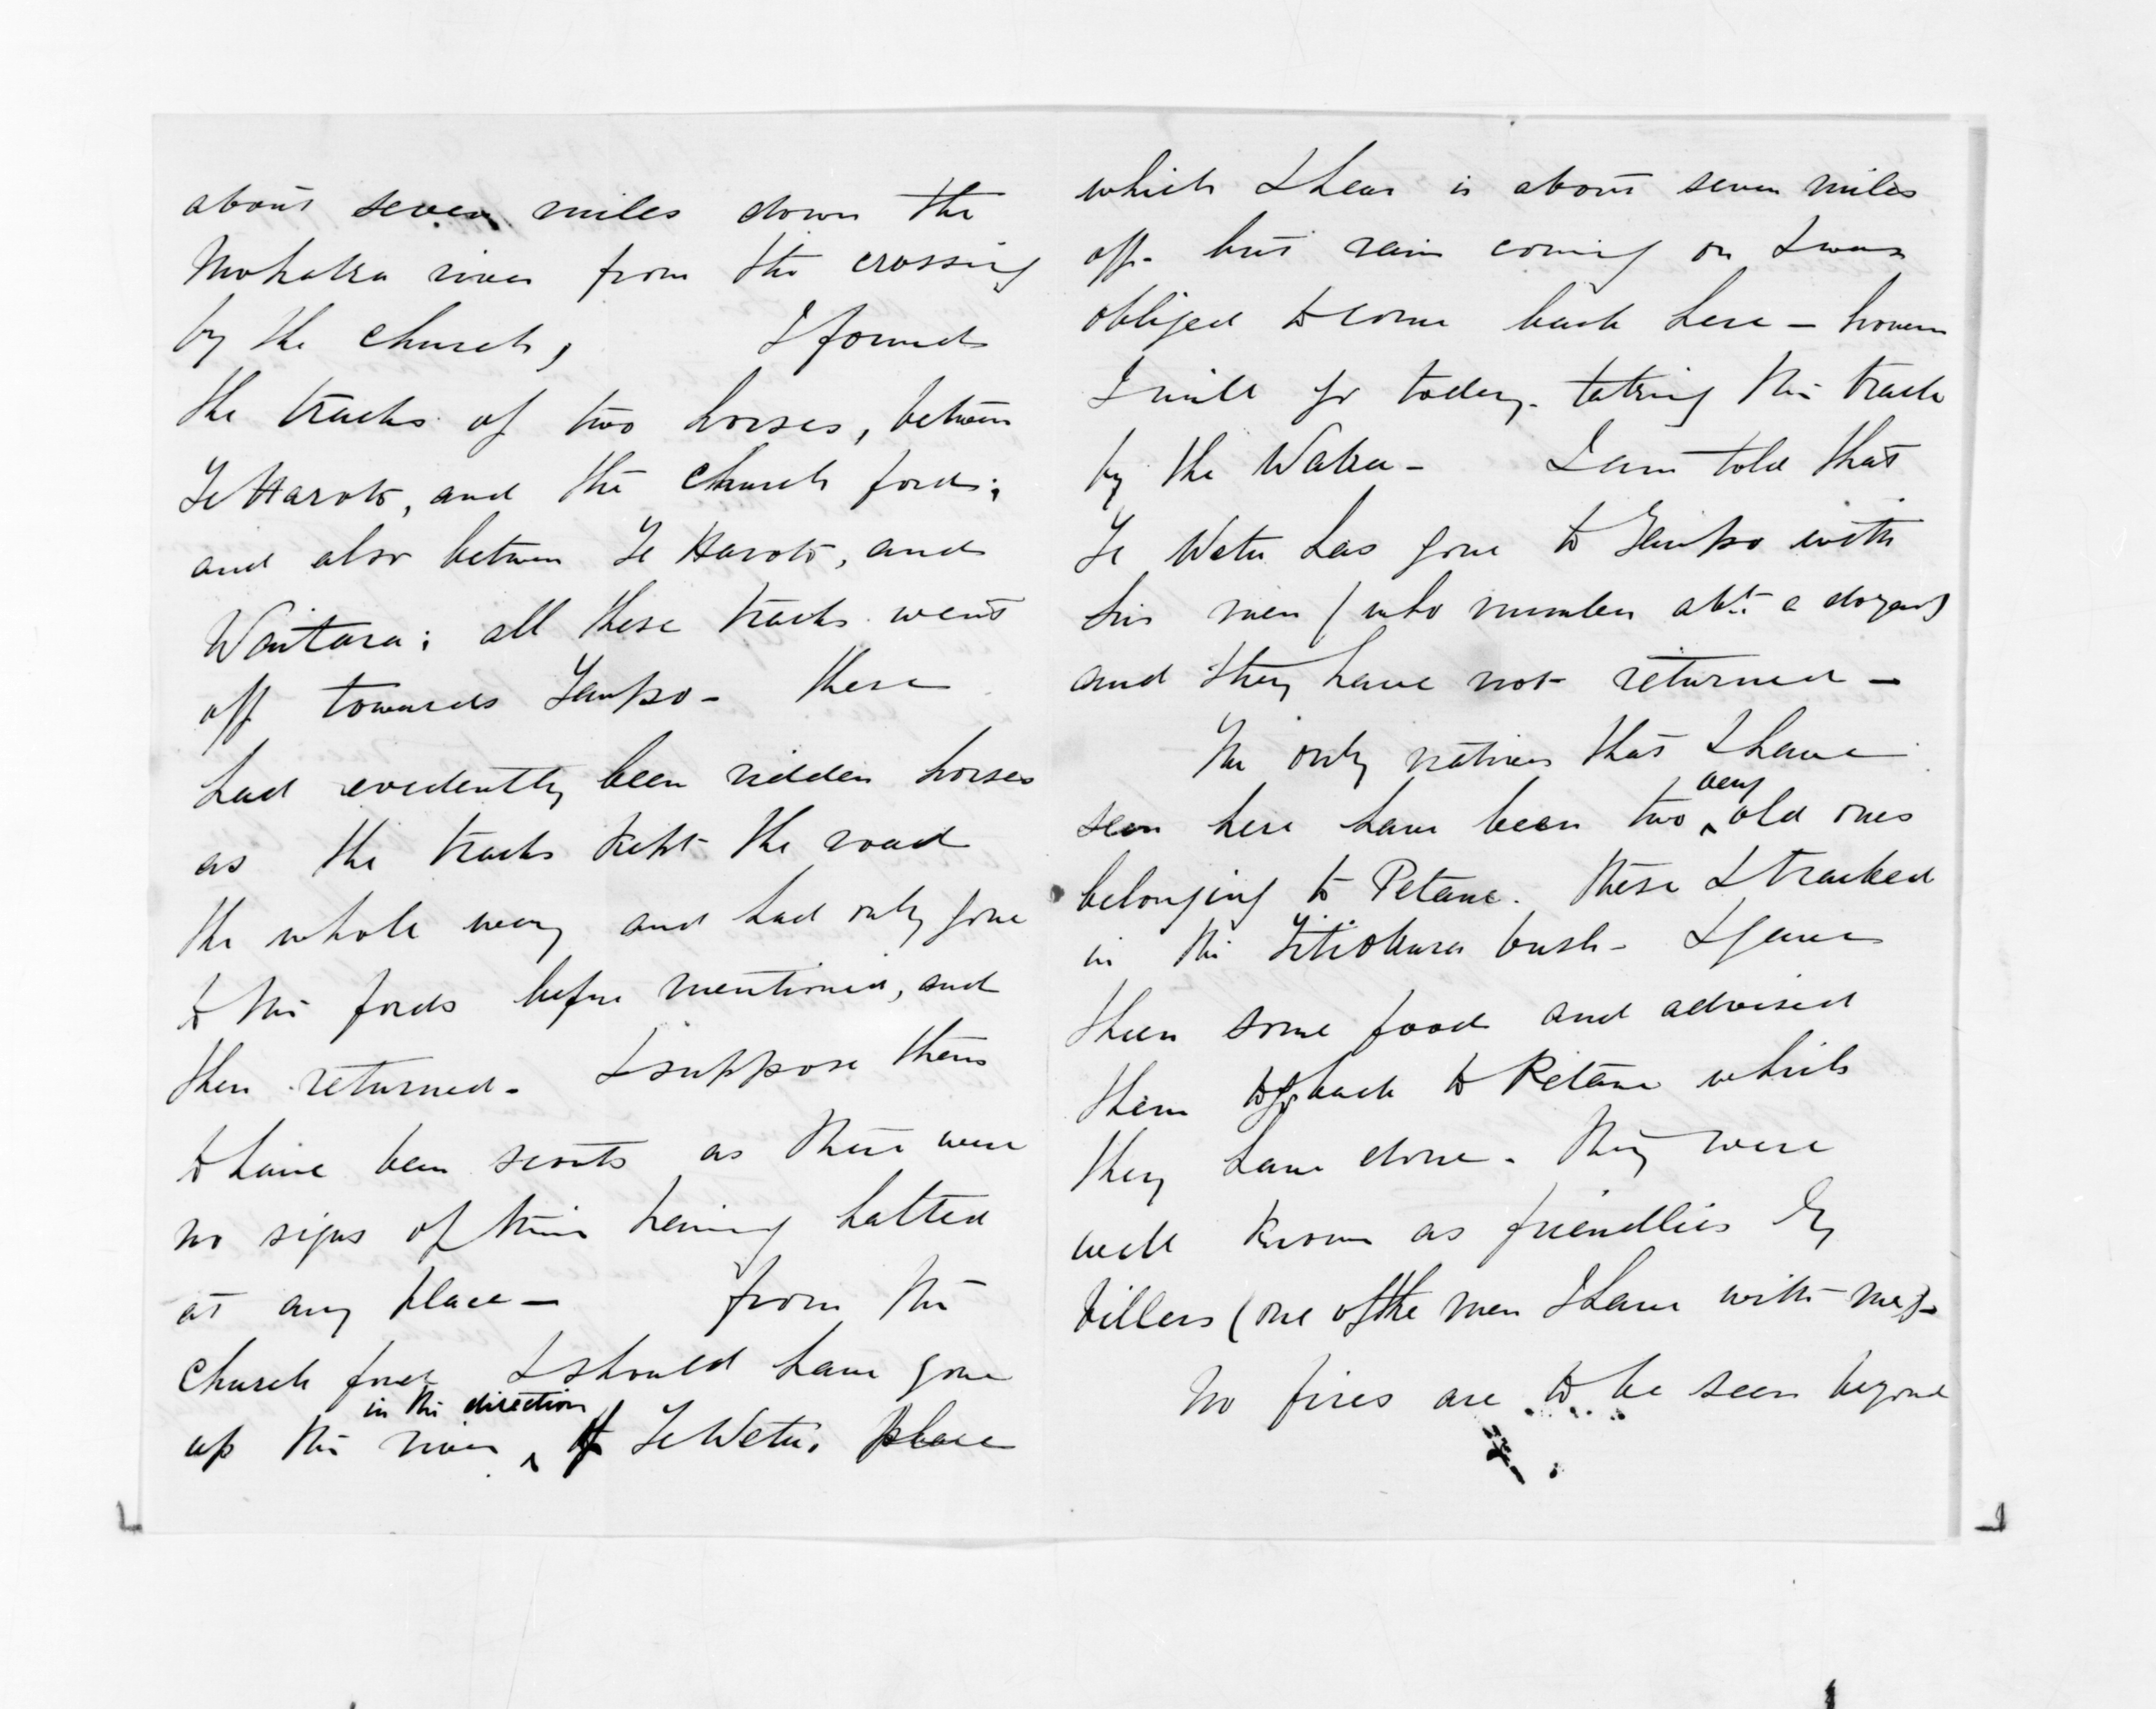 about seven miles down the
Mohaka river from the crossing
by the church, I found
the tracks of two horses, between
Te Haroto, and the church ford;
and also between Te Haroto, and
Waitara; all these tracks went
off towards Taupo - these
had evidently been ridden horses
as the tracks kept the road
the whole way and had only gone
to the fords before mentioned, and
then returned - I suppose them
to have been scouts as there were
no signs of their having halted
at any place - from the
church ford I should have gone
in the direction
up the river ^ of Te Wetu's place
which I hear is about seven miles
off - but rain coming on I was
obliged to come back here -
I will go today - taking the track
by the Waka - I am told that
Te Wetu has gone to Taupo with
his men (who number abt. a dozen)
and they have not returned -
The only natives that I have
very
seen here have been two ^ old ones
belonging to Petane. These I tracked
in the Titiokura bush - I gave
them some food and advised
them to go back to Petane which
they have done - They were
well known as friendlies by
Villers (one of the men I have with me) -
No fires are to be seen beyond